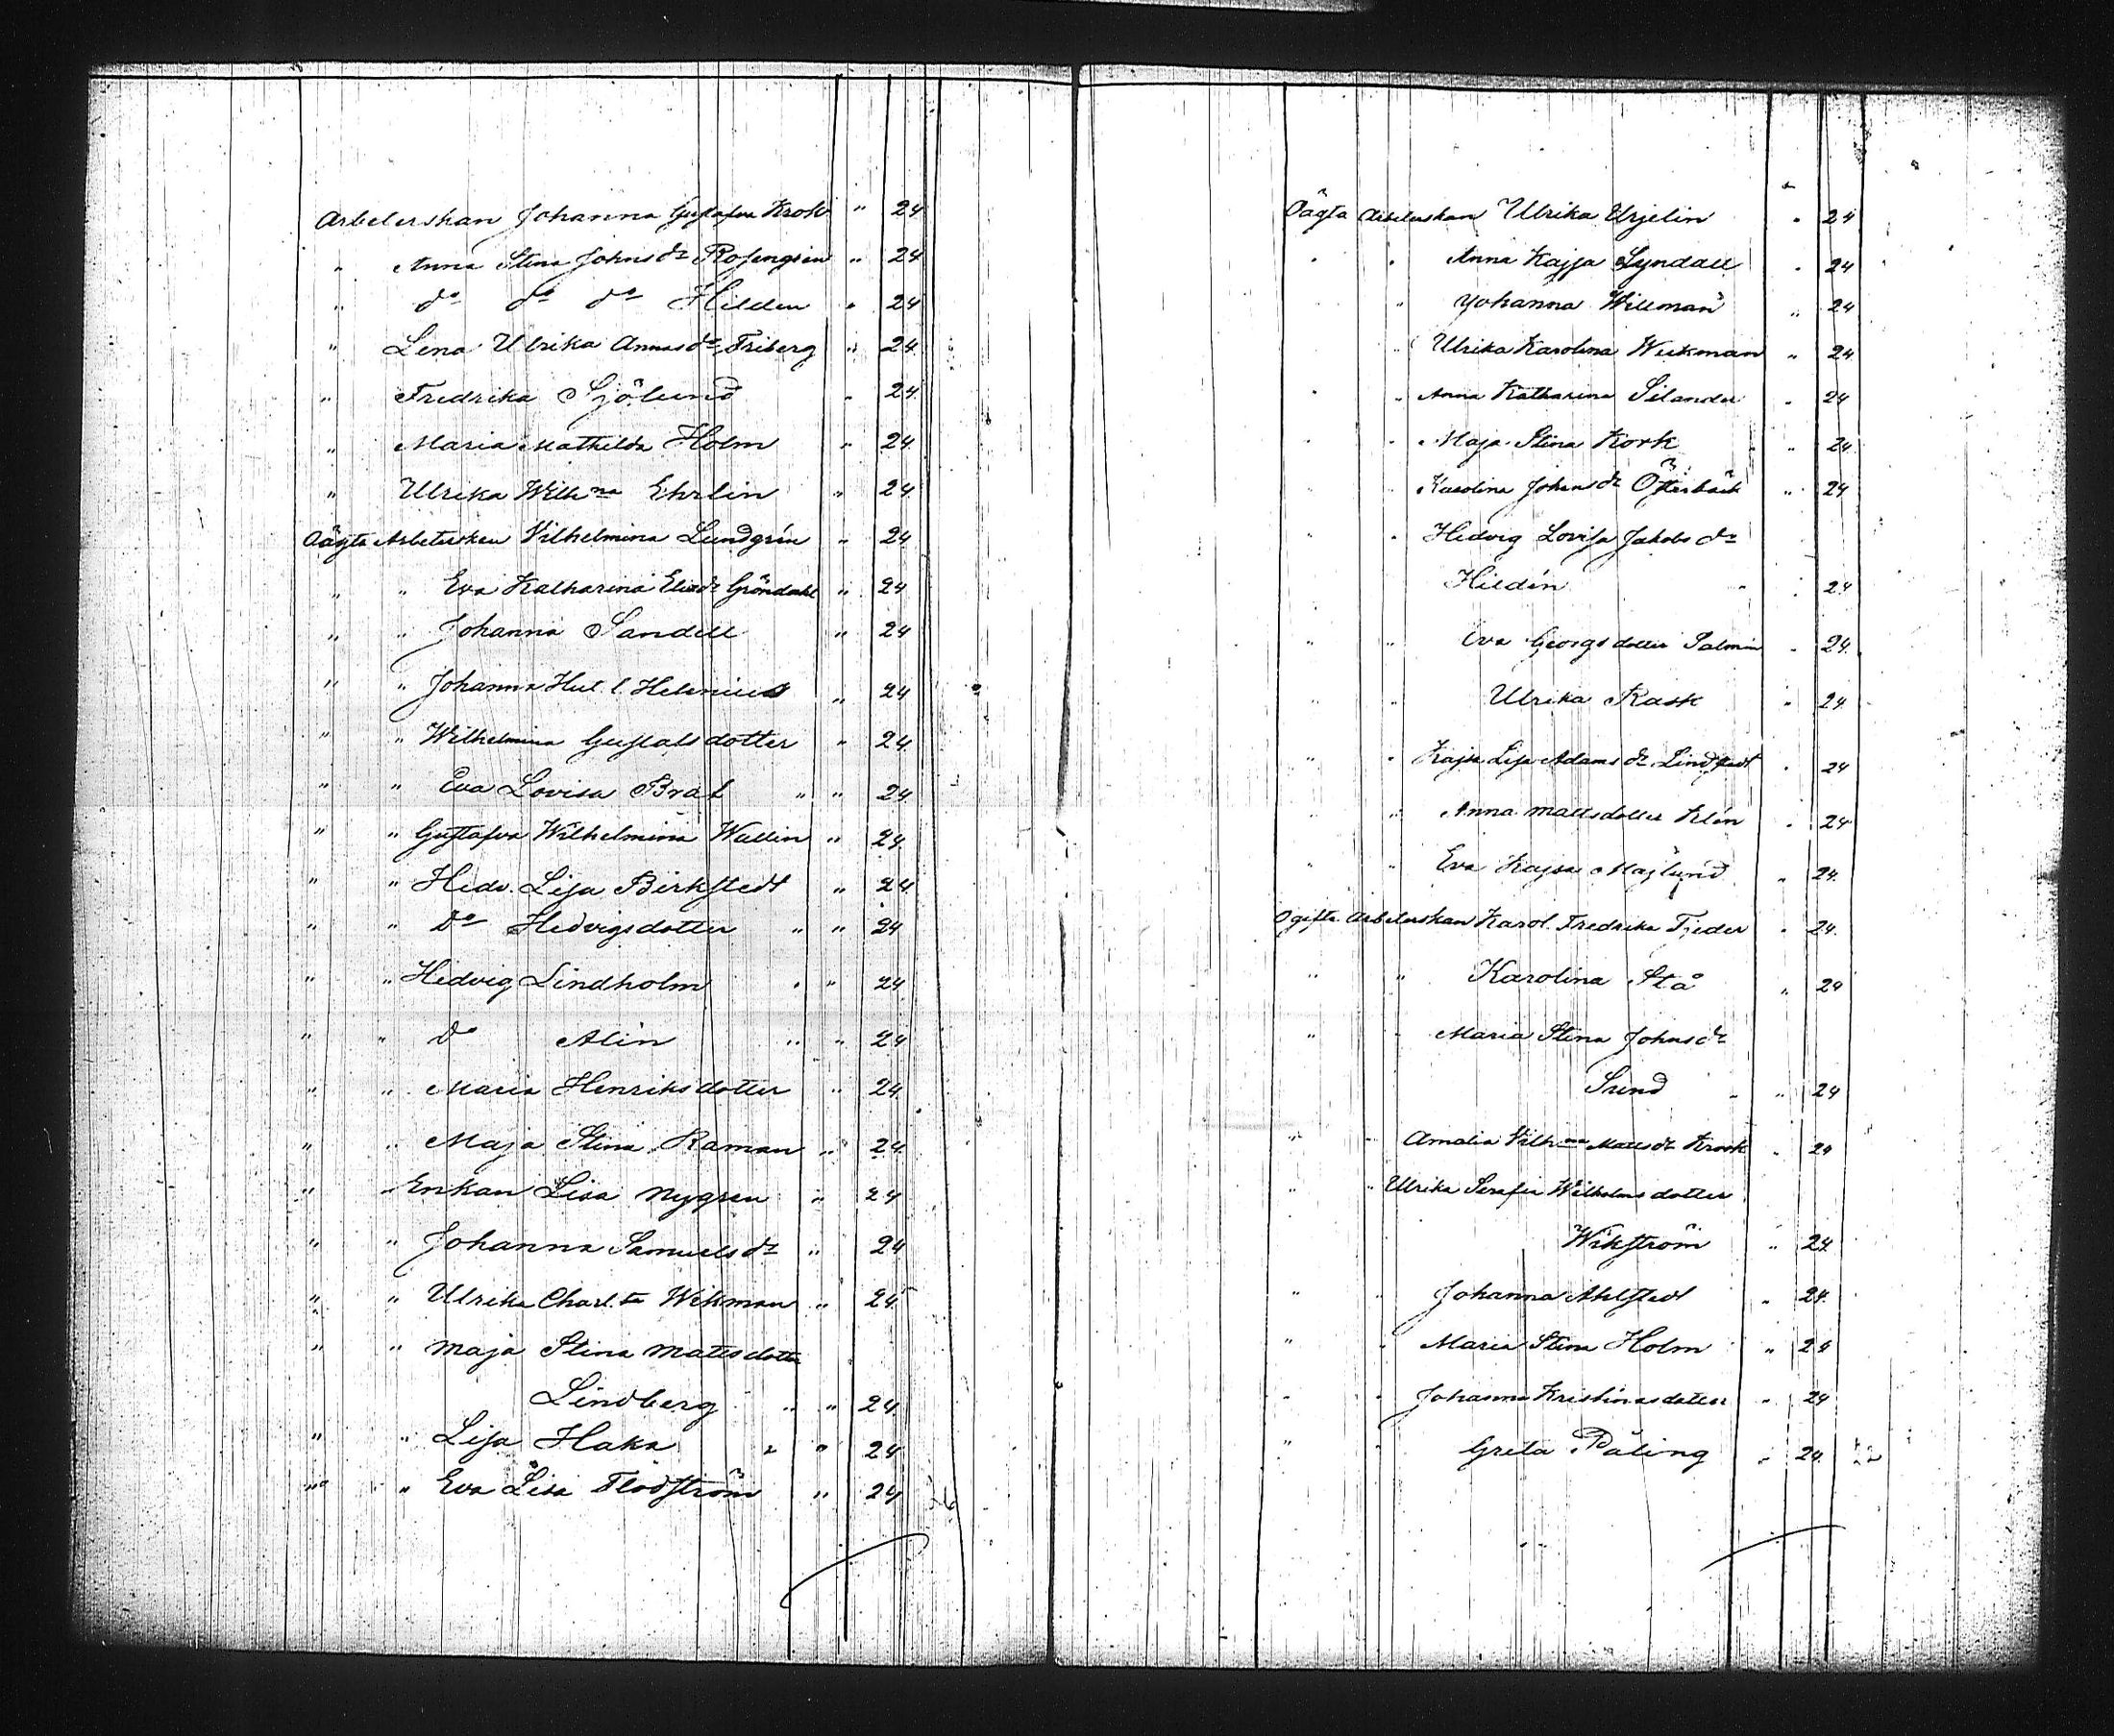 Arbeterskan Johanna Gustafva Krok " 24
" Anna Stina Johns dr Rosengren " 24
" do do do Hilden " 24
" Lena Ulrika Annas dr Friberg " 24
" Fredrika Sjölund " 24
" Maria Mathilda Holm " 24
" Ulrika Wilh:na Ehrlin " 24
Oägta Arbeterskan Vilhelmina Lundgrén " 24
" " Eva Katharina Elias dr Gröndahl " 24
" " Johanna Sandell " 24
" " Johanna Helenius " 24
" " Wilhelmina Gustafsdotter " 24
" " Eva Lovisa Braf " " 24
" " Gustafva Wilhelmina Wallin " 24
" " Hedv. Lisa Birkstedt " 24
" " Do Hedvigsdotter " " 24
" " Hedvig Lindholm " " 24
" " Do Alin " " 24
" " Maria Henriksdotter " 24
" " Maja Stina Raman " 24
" " Enkan Lisa Nygren " 24
" " Johanna Samuels dr " 24
" " Ulrika Charl.ta Wikman " 24
" " Maja Stina Matts dotter
Lindberg " " 24
" " Lisa Haka " " 24
" " Eva Lisa Flodström " 24
Oägta Arbeterskan Ulrika Urjelin " 24
" " Anna Kajsa Lyndall " 24
" " Johanna Willman " 24
" Ulrika Karolina Weckman " 24
" " Anna Katharina Silander " 24
" " Maja Stina Kork " 24
" " Karolina Johns dr Österbäck " 24
" " Hedvig Lovisa Jakobs dr
Hildén " " 24
" " Eva Georgs dotter Salmin " 24
" " Ulrika Rask " 24
" " Kajsa Lisa Adams dr Lindstedt " 24
" " Anna Mattsdotter Klén " 24
" " Eva Kajsa Haglund " 24
Ogifta Arbeterskan Karol. Fredrika Tjeder " 24
" " Karolina Stå " 24
" " Maria Stina Johns dr
Sund " " 24
" " Amalia Vilh:na Matts dr Krook " 24
" " Ulrika Serafia Wilhelms dotter
Wikström " 24
" " Johanna Ahlstedt " 24
" " Maria Stina Holm " 24
" " Johanna Kristinas dotter " 24
" " Greta Påling " 24